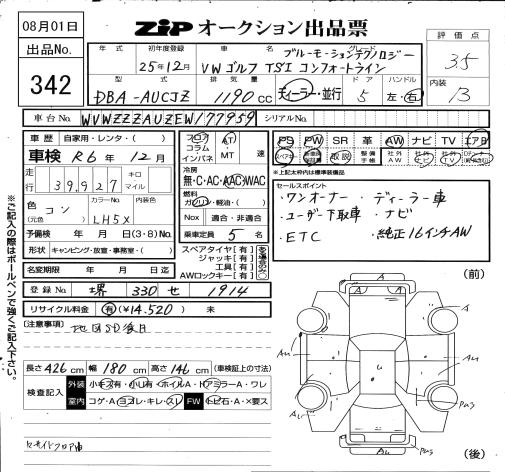 08月01日
ZIP オークション出品票
出品No.
342
評価点
3.5
内装
B
年式
初年度登録
車名
グレード
ブルーモーションテクノロジー
25年12月
VW ゴルフ TSI コンフォートライン
型式
排気量
ドア
ハンドル
DBA-AUCJZ
1190cc
ディーラー・並行
5
左・右
車台No.
WVWZZZAUZEW177959
シリアルNo.
車歴
自家用・レンタ・( )
車検 R6年12月
走行
139,927
キロ
マイル
色
(元色)
コン
カラーNo.
LH5X
内装色
予備検
年 月 日(3・8)No.
形状
キャンピング・放置・事務室・( )
名変期限
年 月 日迄
フロア
コラム
インパネ
AT
MT
速
冷房
無・C・AC・AAC・WAC
燃料
ガソリン・軽油・( )
Nox
適合・非適合
乗車定員
5名
スペアタイヤ【有】
ジャッキ【有】
工具【有】
AWロックキー【有】
PS PW SR 革 AW ナビ TV エアB
取説
整備手帳
社外AW
社外ナビ
社外TV
*上記太枠内は標準装備品
セールスポイント
・ワンオーナー ・ディーラー車
・ユーザー下取車 ・ナビ
・ETC ・純正16インチAW
登録No.
堺 330 せ 1914
リサイクル料金
有(¥14,520)
未
【注意事項】
地図SD後日
長さ426cm 幅180cm 高さ146cm (車検証上の寸法)
検査記入
外装
小キズ有・小凹有・ホイルA・ドアミラーA・ワレ
室内
コゲ・A・ヨゴレ・キレ・スレ
FW
トビ石・A・×要ス
※ご記入の際はボールペンで強くご記入下さい。
(前)
A
A
A
Au
Au
A
Au
Pug
A
Pug
(後)